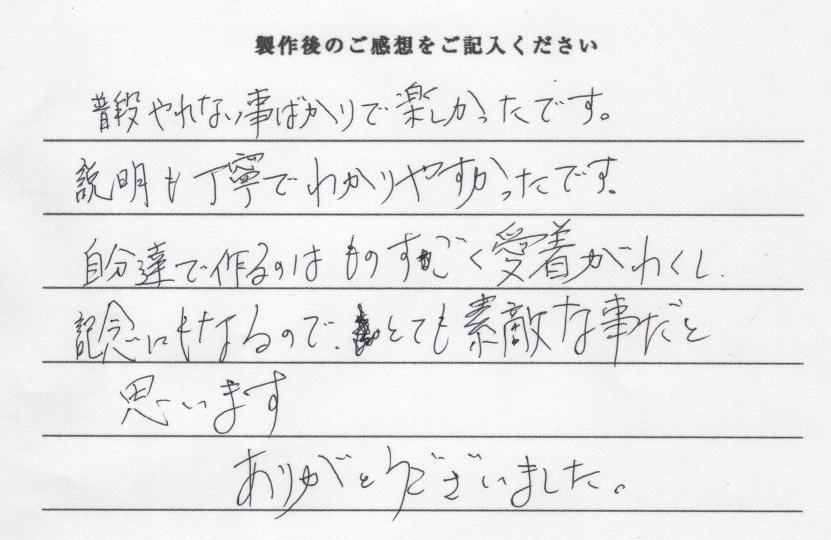 製作後のご感想をご記入ください
普段やれない事ばかりで楽しかったです。
説明も丁寧でわかりやすかったです。
自分達で作るのはものすごく愛着がわくし、
記念にもなるので、とても素敵な事だと
思います
ありがとうございました。